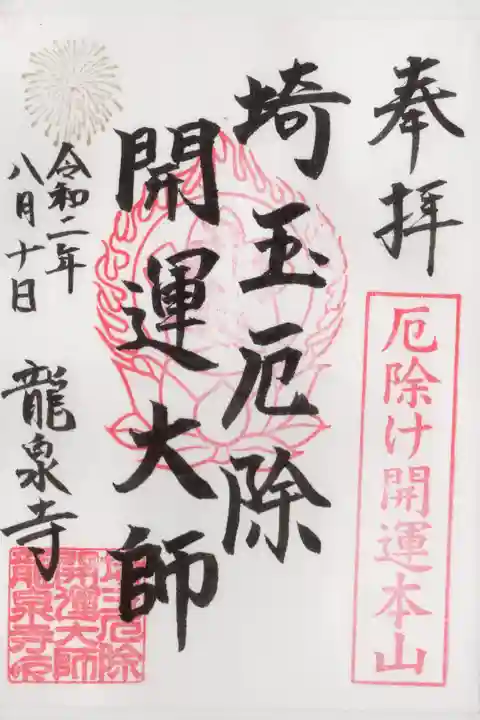 奉拝
厄除け開運本山
埼玉厄除
開運大師
令和二年
八月十日
龍泉寺
埼玉厄除
開運大師
龍泉寺印